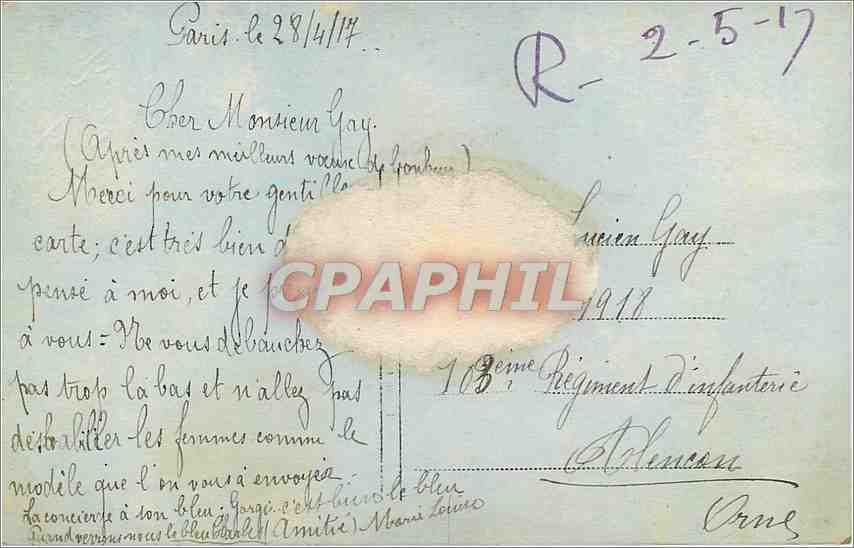 Paris. le 28/4/17
R - 2-5-17
Cher Monsieur Gay.
(Après mes meilleurs vœux de bonheur)
Merci pour votre
carte; c'est très bien
pensé à moi, et je
à vous = Ne vous débauchez
pas trop là bas et n'allez pas
déshabiller les femmes comme le
modèle que l'on vous à envoyez
La concierge à son bleu; c'est bien le bleu
(Amitié) Marie Louise
Lucien Gay
1918
103ème Régiment d'infanterie
Alençon
Orne
CPAPHIL